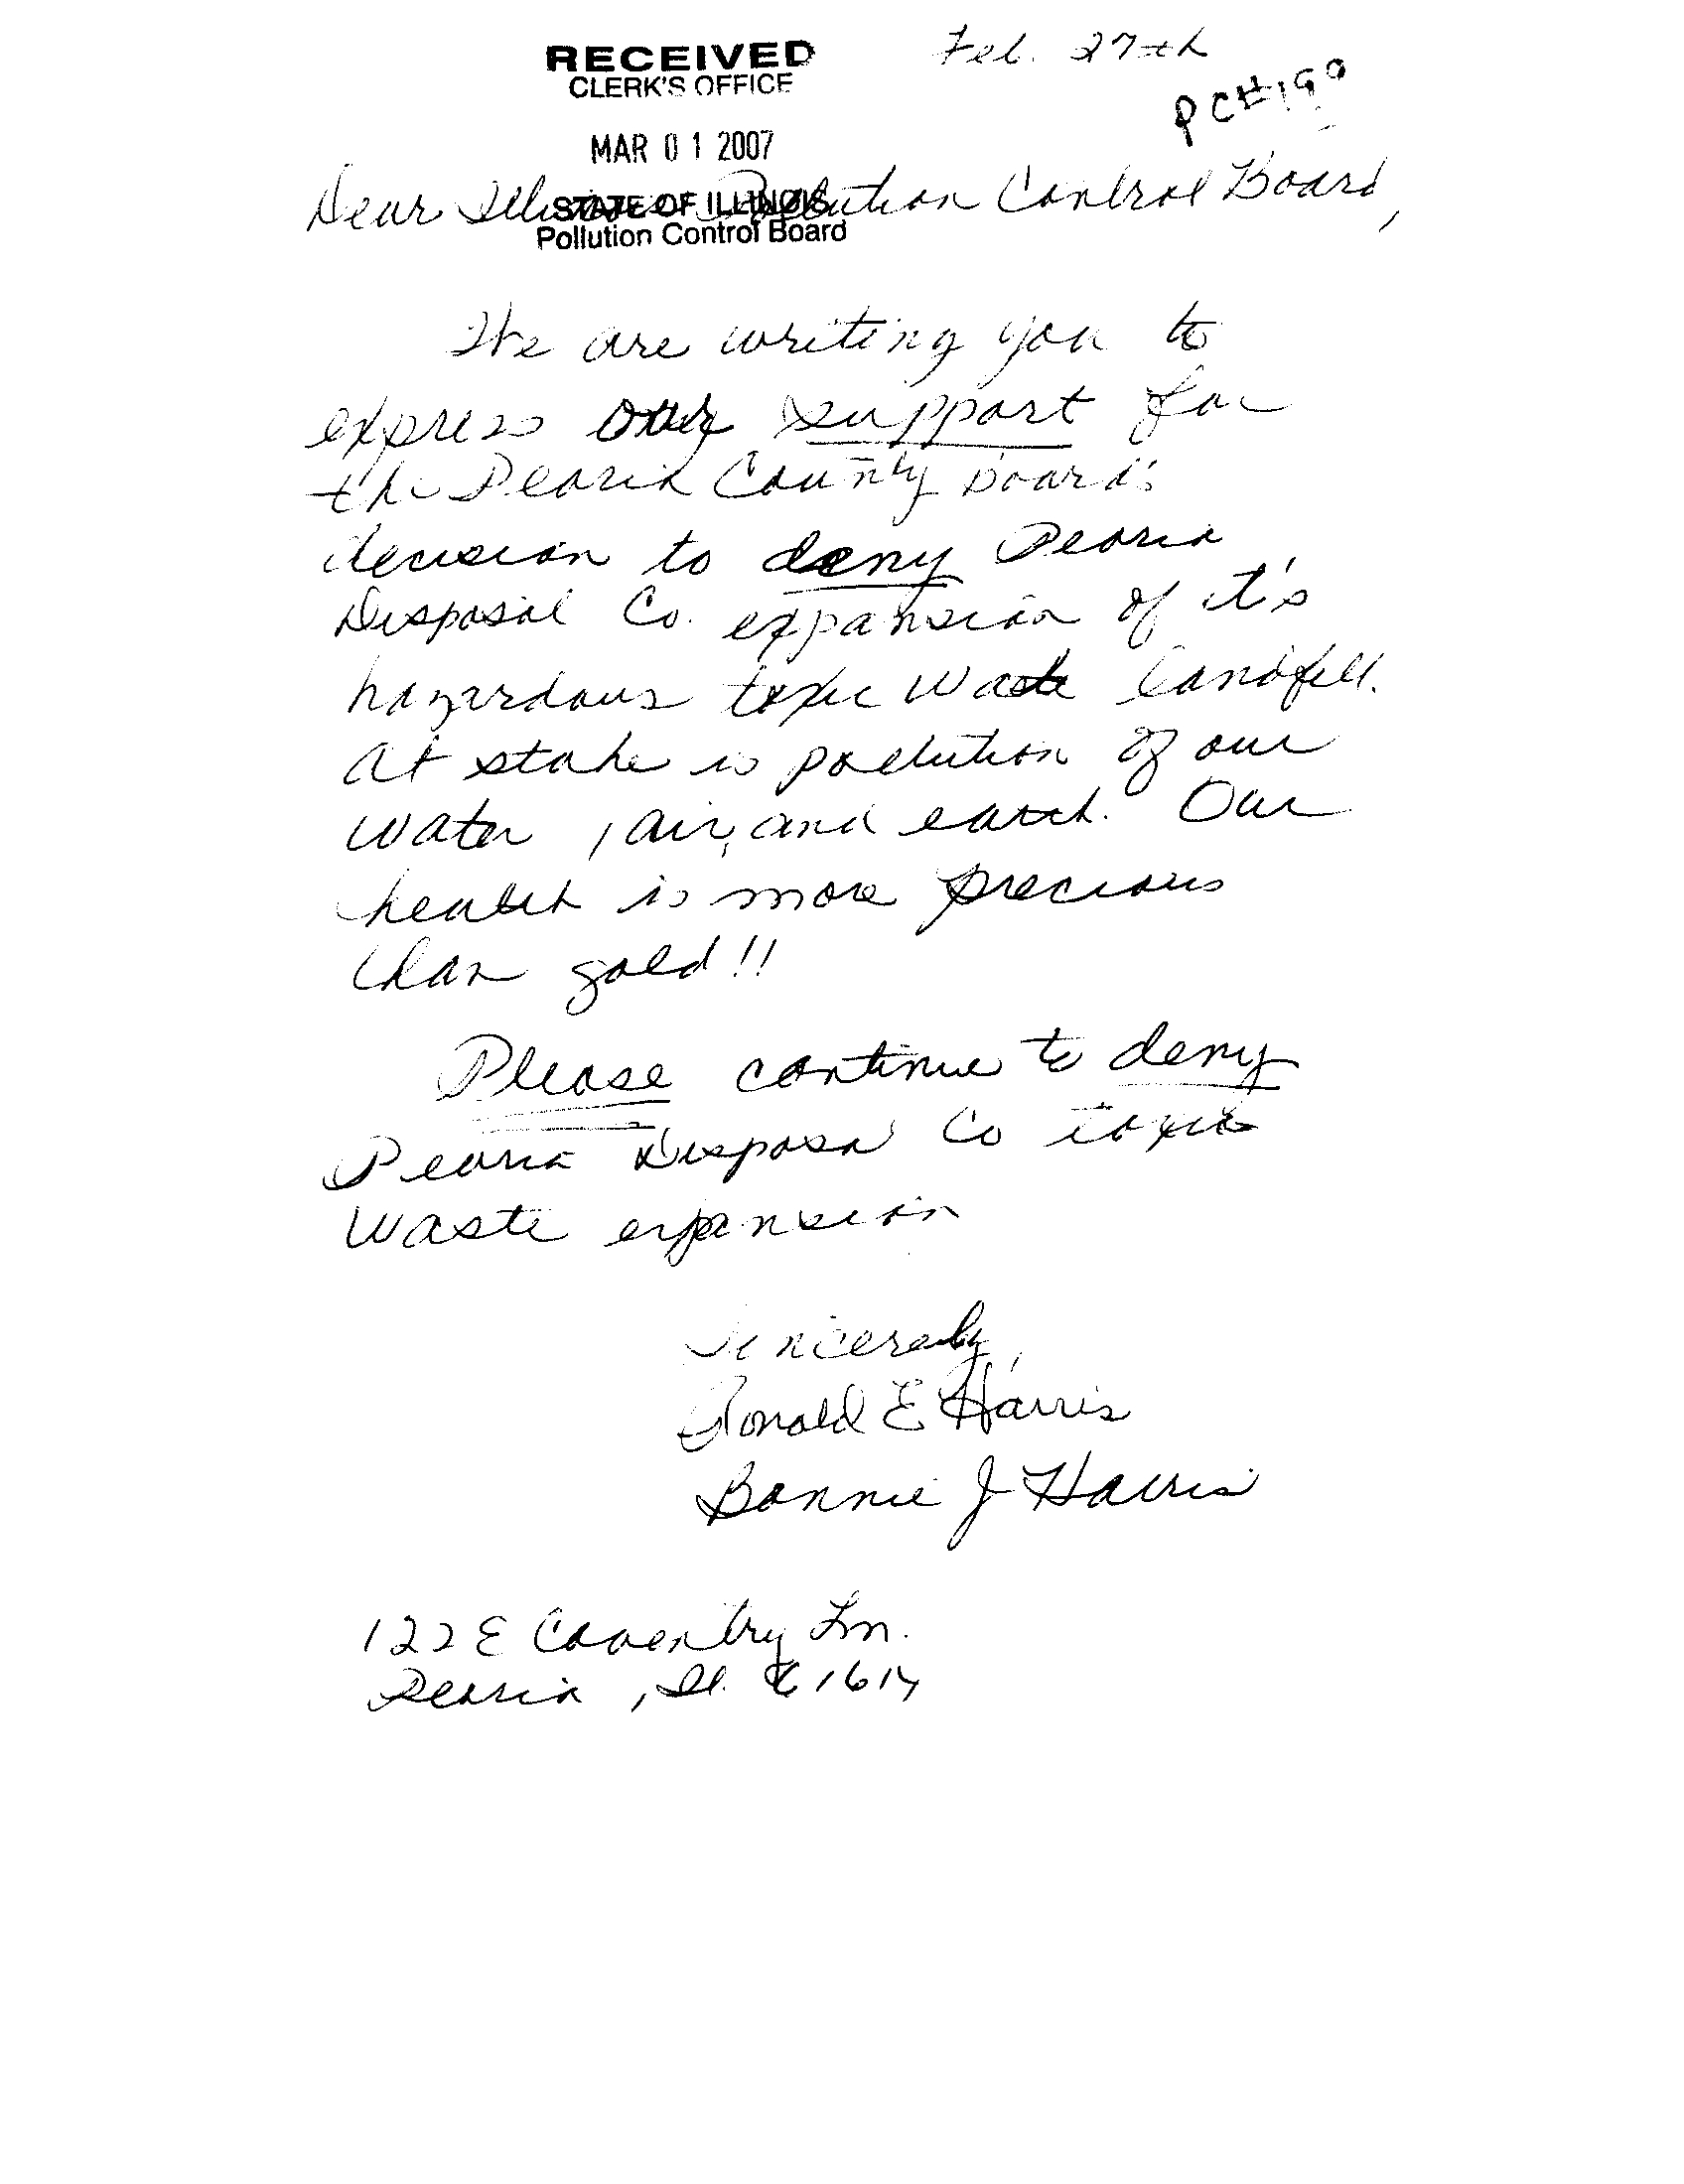 RECEIVED
CLERK'S OFFICE
MAR 01 2007
STATE OF ILLINOIS
Pollution Control Board
Feb. 27th
PC#190
Dear Illinois Pollution Control Board,
We are writing you to
express our support for
the Peoria County Board's
decision to deny Peoria
Disposal Co. expansion of it's
hazardous toxic waste landfill.
At stake is pollution of our
water, air, and earth. Our
health is more precious
than gold!!
Please continue to deny
Peoria Disposal Co toxic
waste expansion
Sincerely,
Ronald E Harris
Bonnie J Harris
122 E Coventry Ln.
Peoria, Il. 61614